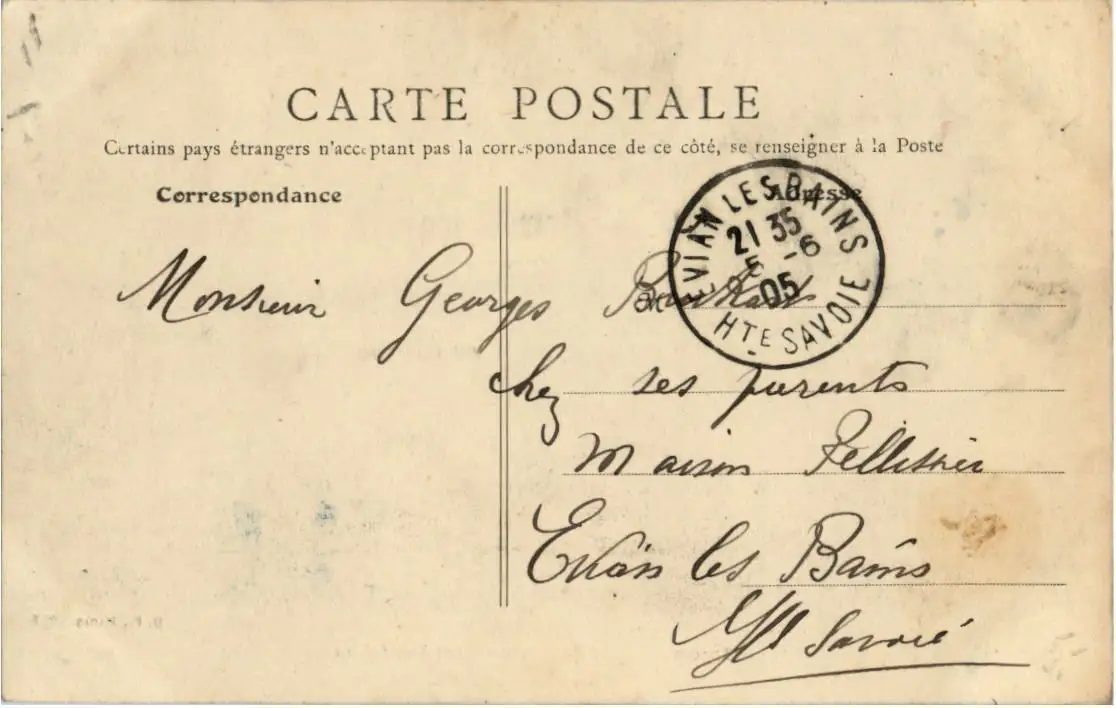 CARTE POSTALE
Certains pays étrangers n'acceptant pas la correspondance de ce côté, se renseigner à la Poste
Correspondance
Adresse
EVIAN LES BAINS
21 35
5 - 6
05
HTE SAVOIE
Monsieur Georges
chez ses parents
Maison Pellissier
Evian les Bains
Hte Savoie